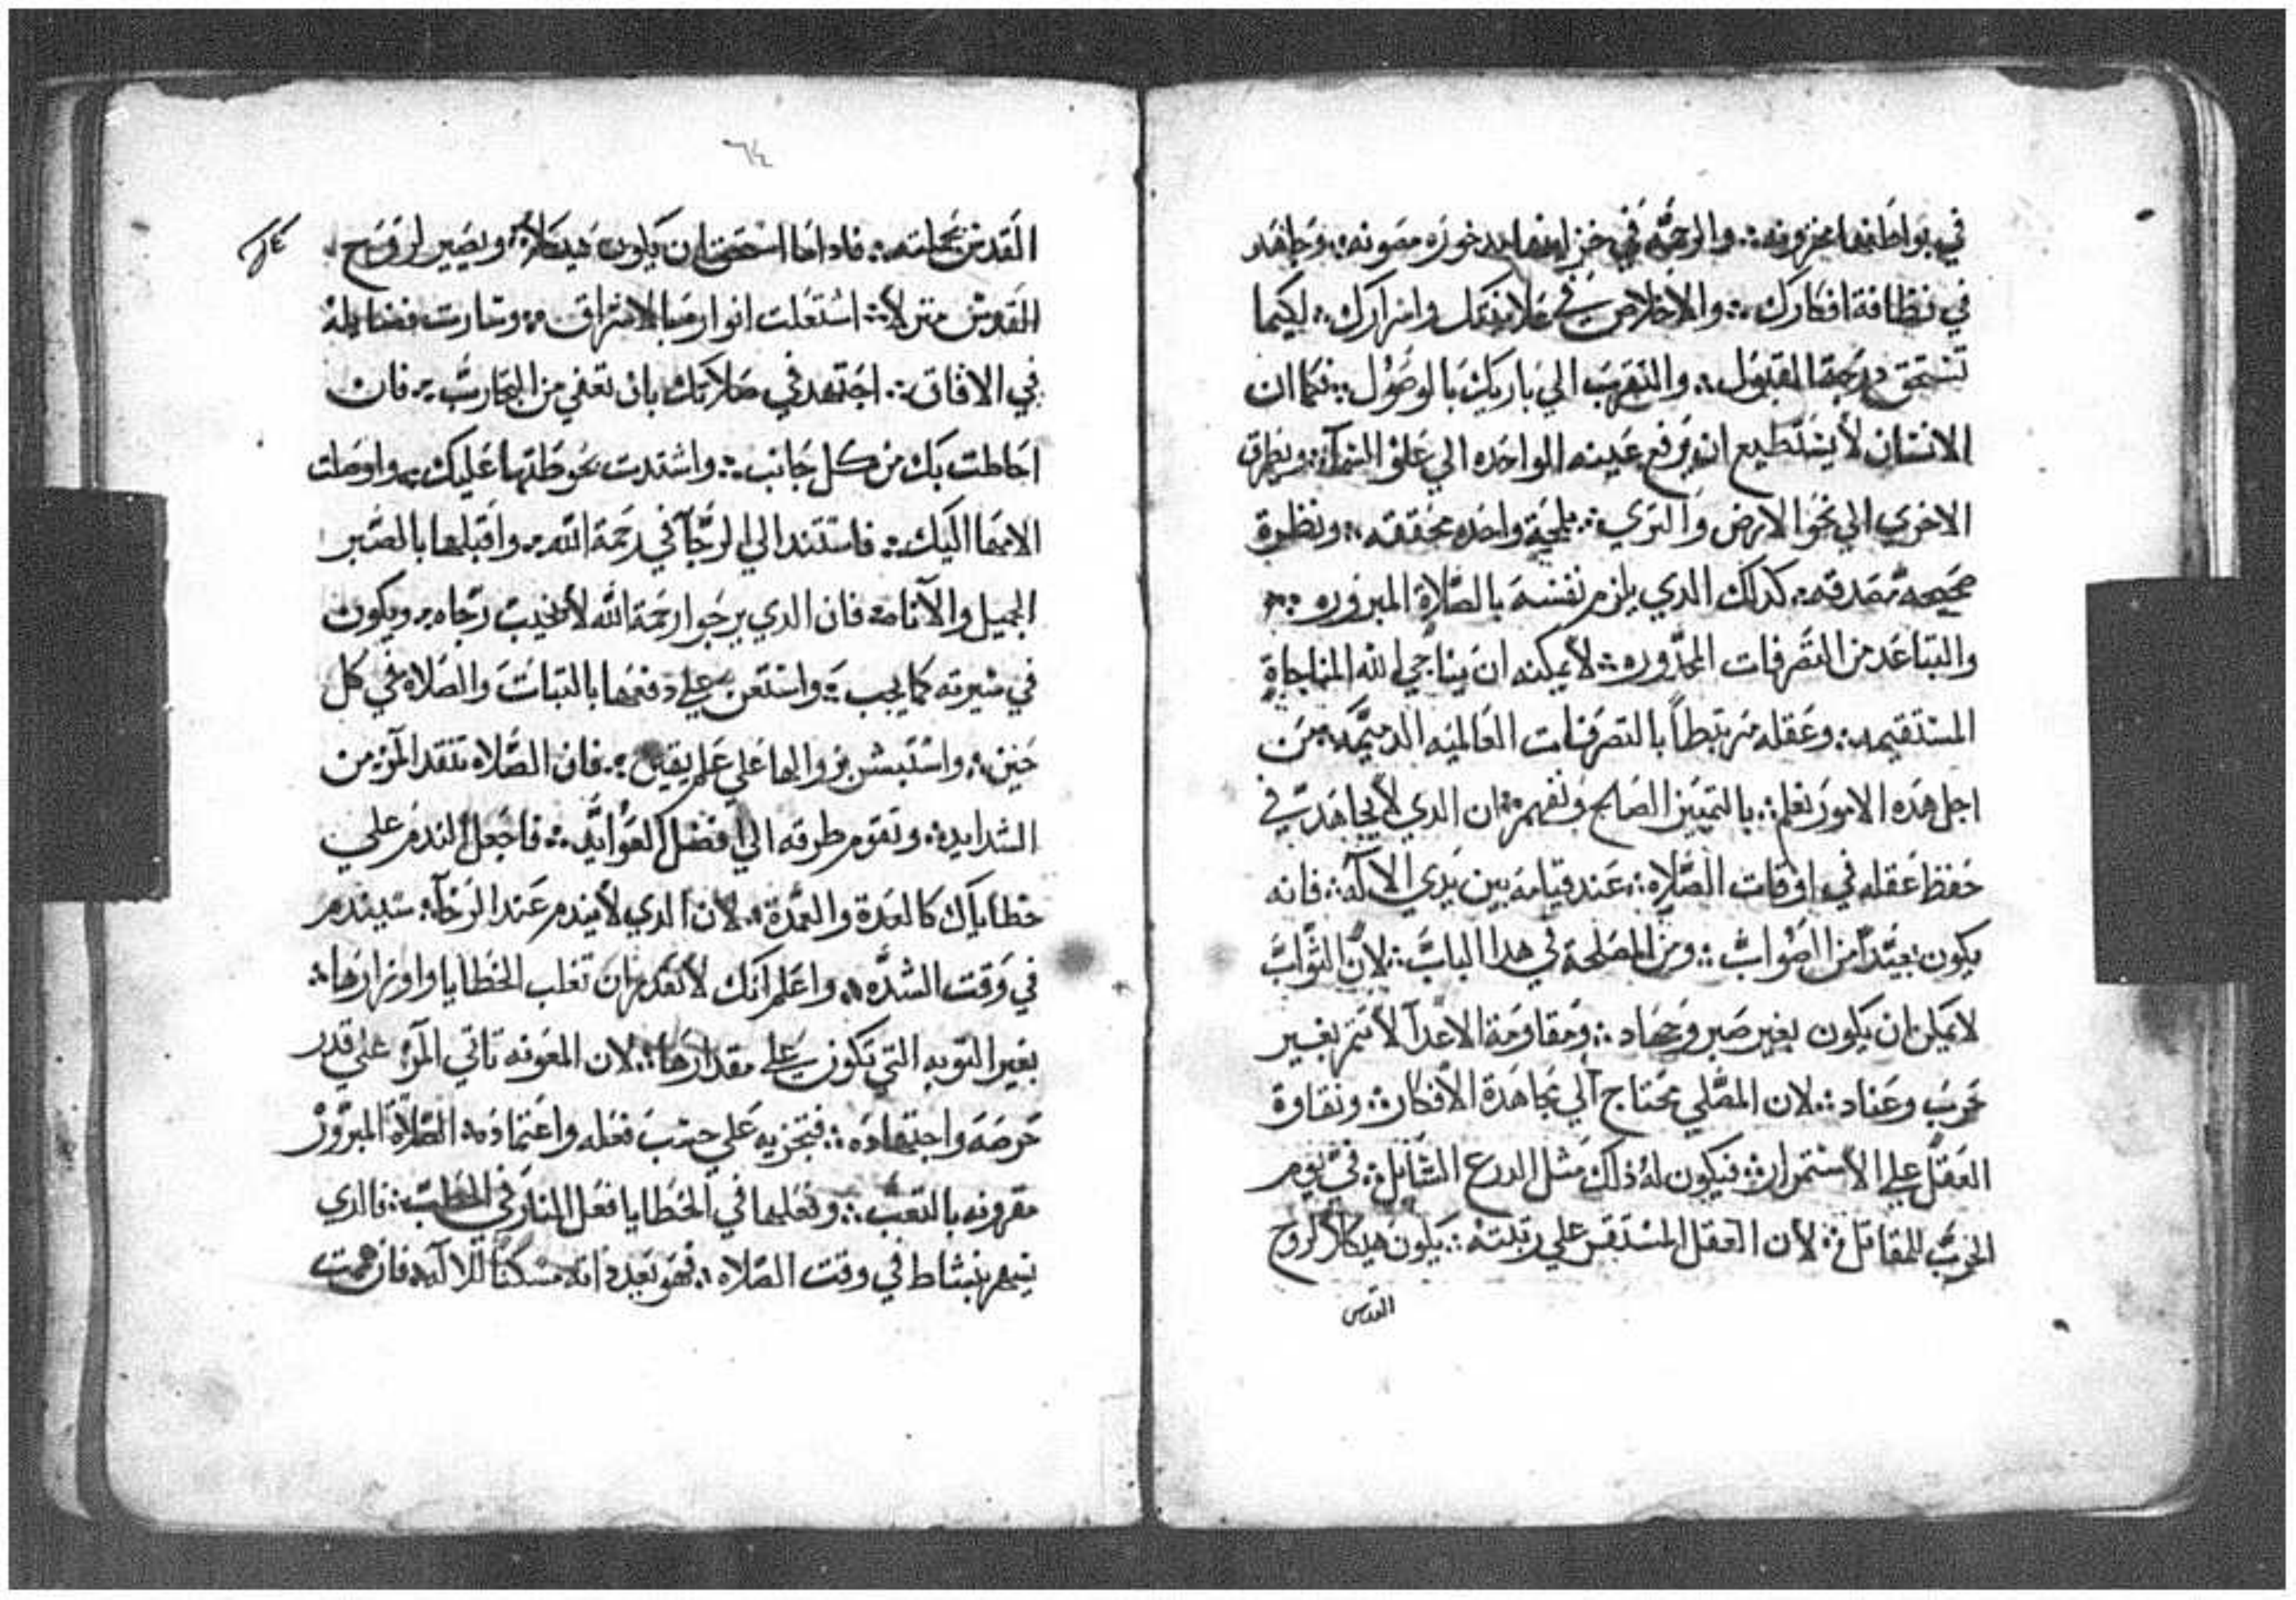 في بواطنها مخزونه ؞ والرحمه في خزاينها مدخوره مصونه ؞ وجاهد
في نظافة افكارك ؞ والاخلاص في علانيتك واسرارك ؞ لكيما
تستحق درجة القبول ؞ والتقرب الي باريك بالوصول ؞ فكما ان
الانسان لا يستطيع ان يرفع عينه الواحده الي علو السمآء ؞ ويطرق
الاخري الي نحو الارض والتري ؞ بلمحة واحده محققه ؞ ونظرة
صحيحه مصدقه ؞ كدلك الدي يلزم نفسه بالصلاة المبروره ؞
والتباعد من التصرفات المحدوره ؞ لا يمكنه ان يناجي الله المناجاة
المستقيمه ؞ وعقله مرتبطاً بالتصرفات العالميه الدميمه ؞ من
اجل هده الامور نعلم ؞ بالتمييز الصالح ونفهم ؞ ان الدي لا يجاهد في
حفظ عقله في اوقات الصلاه ؞ عند قيامه بين يدي الالآه ؞ فانه
يكون بعيداً من الصواب ؞ ومن المصلحة في هدا الباب ؞ لان الثواب
لا يمكن ان يكون بغير صبر وجهاد ؞ ومقاومة الاعدآ لا تتم بغير
حرب وعناد ؞ لان المصلي يحتاج الي مجاهدة الافكار ؞ ونقاوة
العقل علي الاستمرار ؞ فيكون له ذلك مثل الدرع الشامل ؞ في يوم
الحرب للمقاتل ؞ لان العقل المستقر علي رتبته ؞ يكون هيكلاً لروح
القدس
٦٤
القدس بجملته ؞ فاداما استحق ان يكون هيكلاً ؞ ويصير لروح
القدس منزلاً ؞ اشتعلت انواره بالاشراق ؞ وسارت فضايله
في الافاق ؞ اجتهد في صلاتك بان تعفي من التجارب ؞ فان
احاطت بك من كل جانب ؞ واشتدت بحوطتها عليك ؞ واوصلت
الامها اليك ؞ فاستند الي الرجآ في رحمة الله ؞ واقبلها بالصبر
الجميل والآناه ؞ فان الدي يرجوا رحمة الله لا يخيب رجاه ؞ ويكون
في سيرته كما يجب ؞ واستعن علي دفعها بالتبات والصلاه في كل
حين ؞ واستبشر بزوالها علي علم يقين ؞ فان الصلاه تنقد المرؤ من
الشدايد ؞ وتقوم طرقه الي افضل العوايد ؞ فاجعل الندم علي
خطاياك كالعدة والعمدة ؞ لان الدي لا يندم عند الرخآء ؞ سيندم
في وقت الشده ؞ واعلم انك لا تقدر ان تغلب الخطايا واوزارها ؞
بغير التوبه التي تكون علي مقدارها ؞ لان المعونه تاتي المرؤ علي قدر
حرصه واجتهاده ؞ فتجزيه علي حسب فعله واعتماده ؞ الصلاة المبروره
مقرونه بالتعب ؞ وفعلها في الخطايا فعل النار في الحطب ؞ فالدي
يسهر بنشاط في وقت الصلاه ؞ فهو يعد داته مسكناً للالآه ؞ فان همت